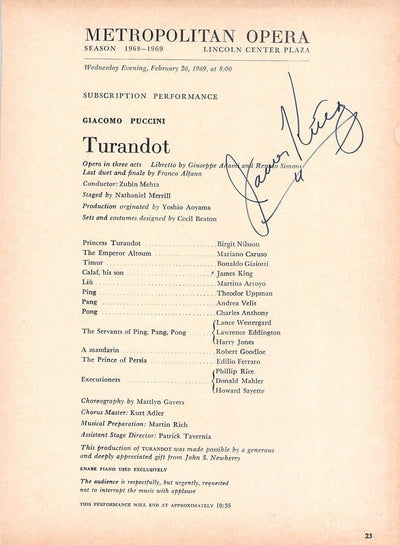 METROPOLITAN OPERA
SEASON 1968–1969 LINCOLN CENTER PLAZA
Wednesday Evening, February 26, 1969, at 8:00
SUBSCRIPTION PERFORMANCE
GIACOMO PUCCINI
Turandot
Opera in three acts Libretto by Giuseppe Adami and Renato Simoni
Last duet and finale by Franco Alfano
Conductor: Zubin Mehta
Staged by Nathaniel Merrill
Production orginated by Yoshio Aoyama
Sets and costumes designed by Cecil Beaton
James King
Princess Turandot Birgit Nilsson
The Emperor Altoum Mariano Caruso
Timur Bonaldo Giaiotti
Calaf, his son James King
Liù Martina Arroyo
Ping Theodor Uppman
Pang Andrea Velis
Pong Charles Anthony
The Servants of Ping, Pang, Pong Lance Westergard
Lawrence Eddington
Harry Jones
A mandarin Robert Goodloe
The Prince of Persia Edilio Ferraro
Executioners Phillip Rice
Donald Mahler
Howard Sayette
Choreography by Mattlyn Gavers
Chorus Master: Kurt Adler
Musical Preparation: Martin Rich
Assistant Stage Director: Patrick Tavernia
This production of TURANDOT was made possible by a generous
and deeply appreciated gift from John S. Newberry
KNABE PIANO USED EXCLUSIVELY
The audience is respectfully, but urgently, requested
not to interrupt the music with applause
THIS PERFORMANCE WILL END AT APPROXIMATELY 10:55
23